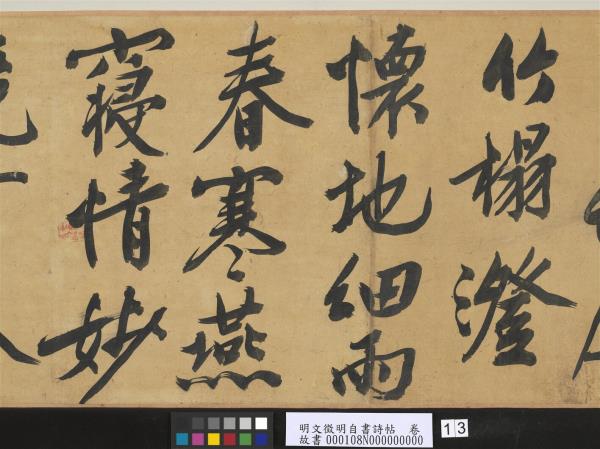 竹榻澄
懷地細雨
春寒燕
寢情妙
明文徵明自書詩帖　卷
故書000108N000000000
13